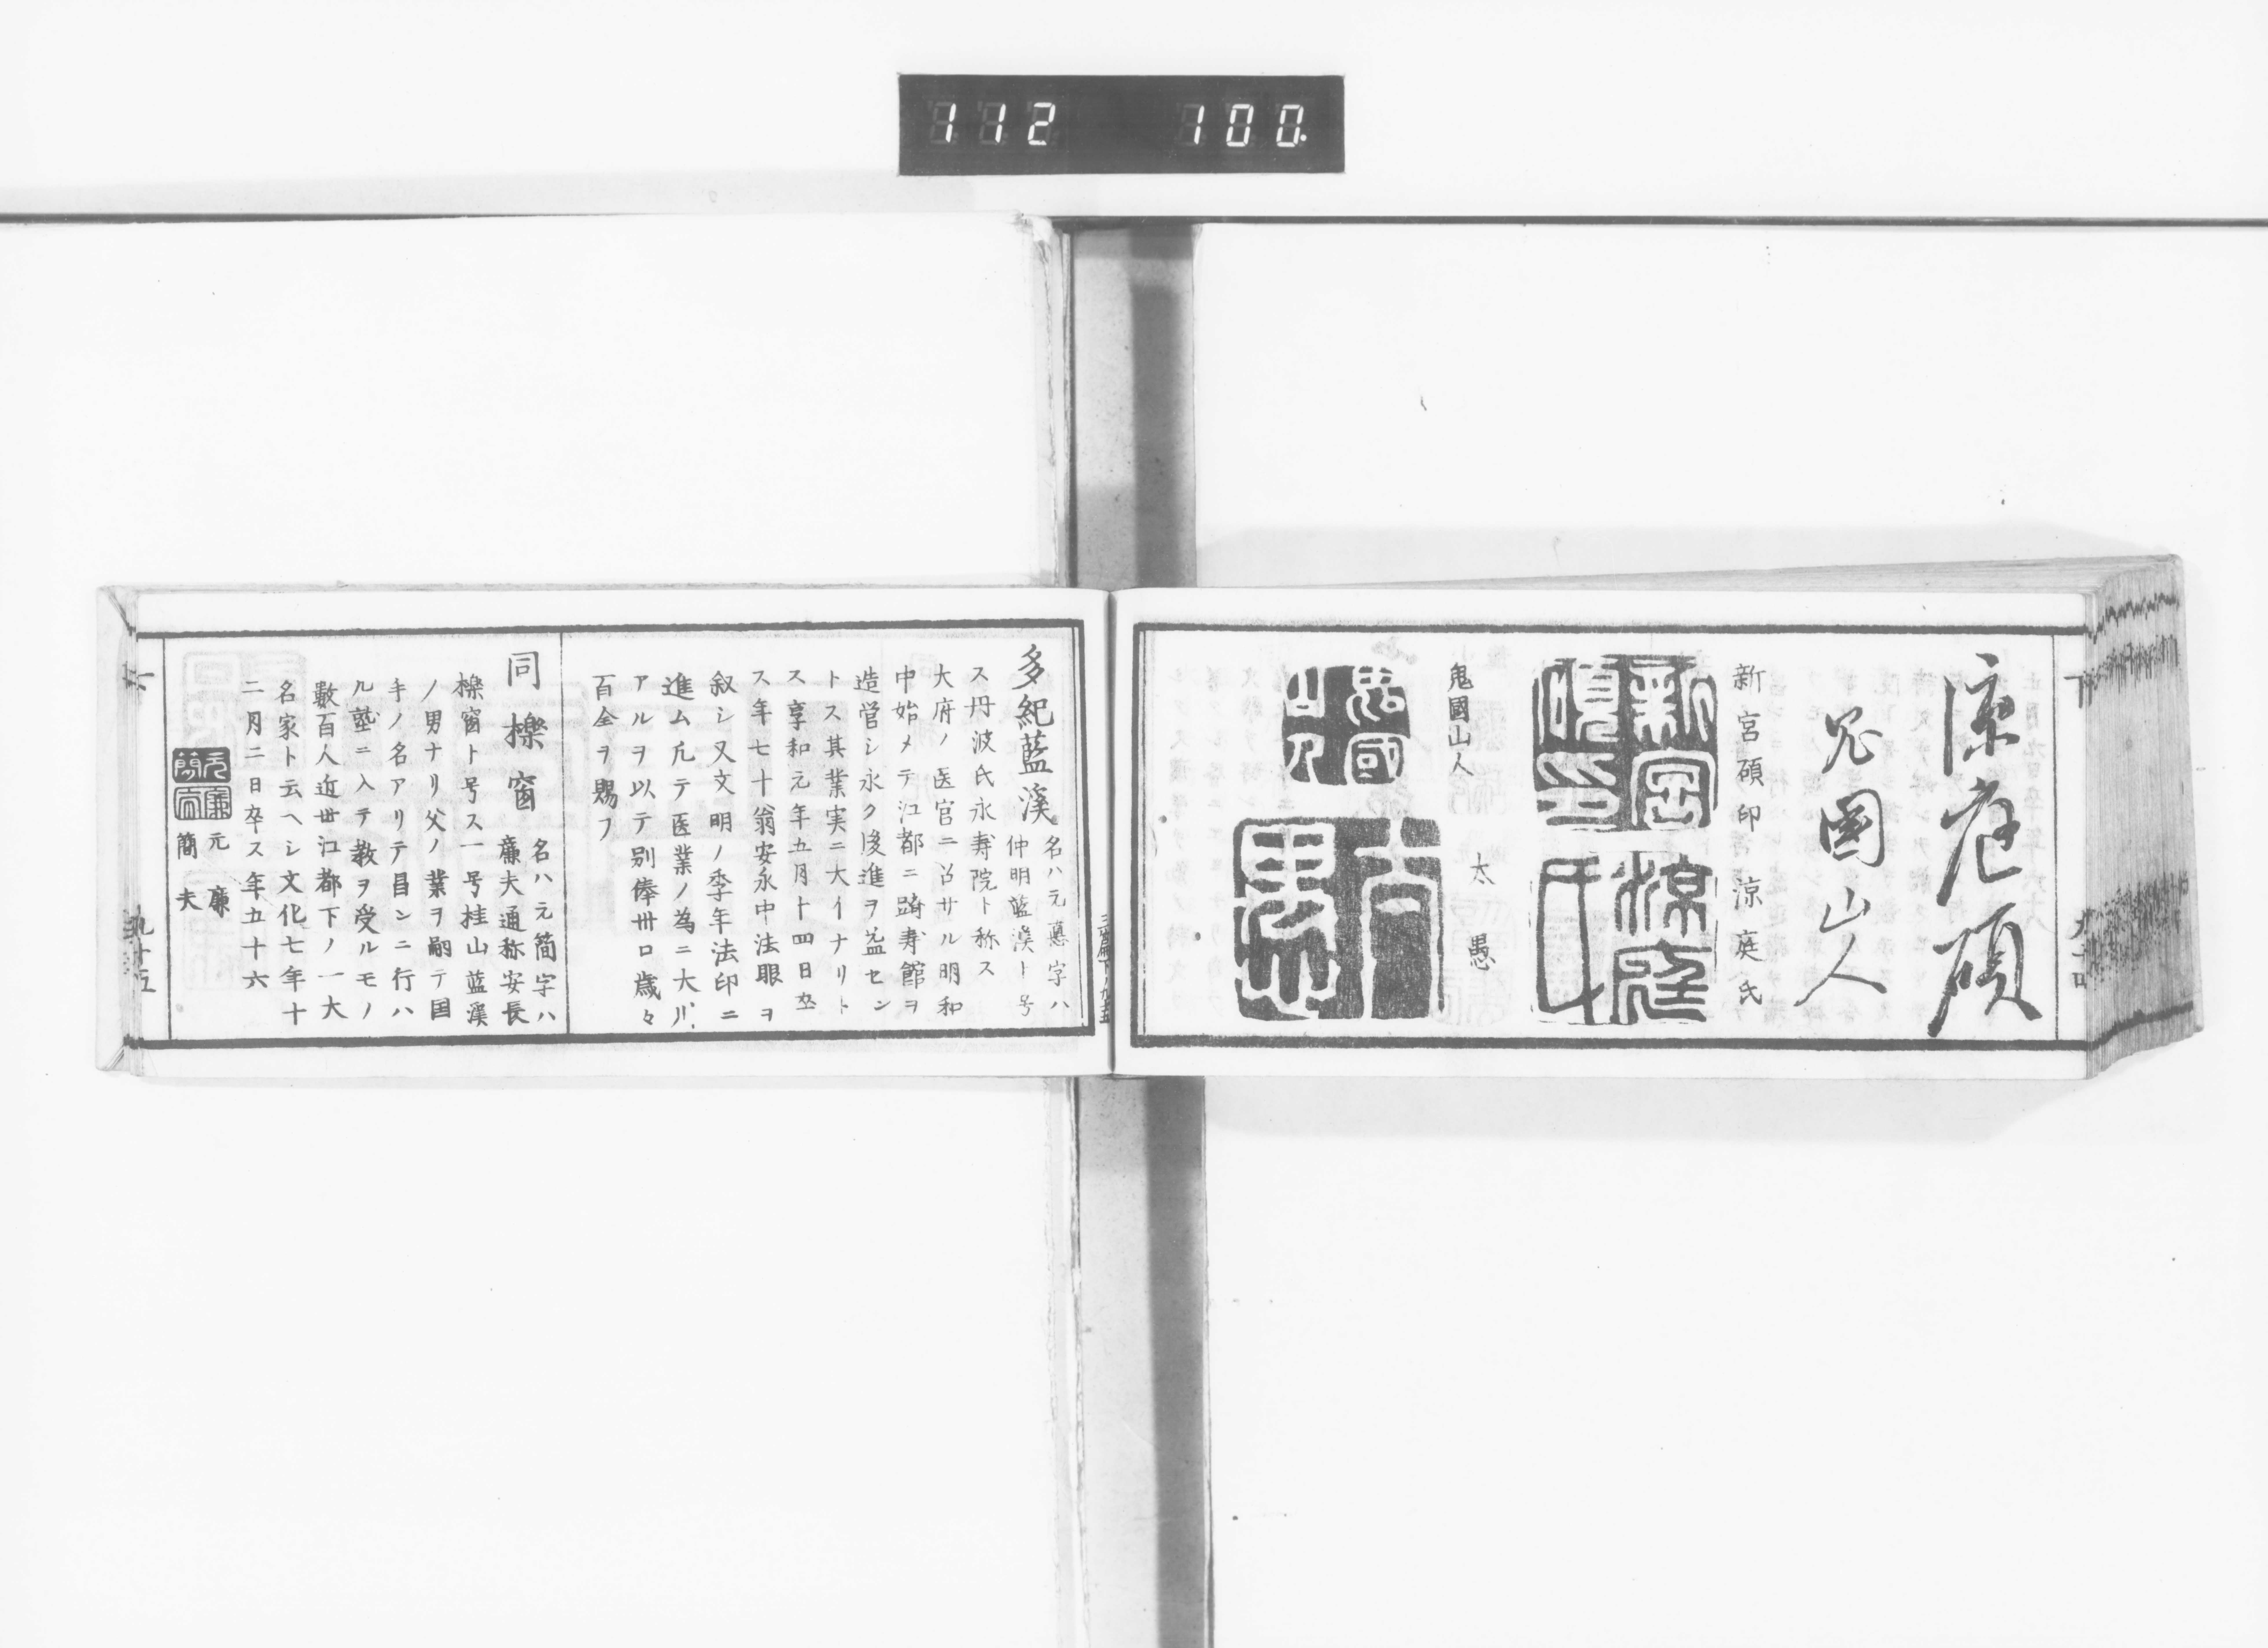 112 100.
下
九十四
涼庭碩
鬼國山人
新宮碩印 涼庭氏
新宮碩印
涼庭氏
鬼國山人 太愚
鬼國山人
太愚
多紀藍溪
名ハ元悳字ハ
仲明藍溪ト号
ス丹波氏永寿院ト称ス
大府ノ医官ニ召サル明和
中始メテ江都ニ躋寿館ヲ
造営シ永ク後進ヲ益セン
トス其業実ニ大イナリト
ス享和元年五月十四日卆
ス年七十翁安永中法眼ヲ
叙シ又文明ノ季年法印ニ
進ム凢テ医業ノ為ニ大
アルヲ以テ別俸卅口歳々
百金ヲ賜フ
同櫟窗
名ハ元簡字ハ
廉夫通称安長
櫟窗ト号ス一号桂山藍溪
ノ男ナリ父ノ業ヲ嗣テ国
手ノ名アリテ昌ンニ行ハ
ル塾ニ入テ教ヲ受ルモノ
數百人近世江都下ノ一大
名家ト云ヘシ文化七年十
二月二日卒ス年五十六
元簡
廉夫
元廉
簡夫
九十五